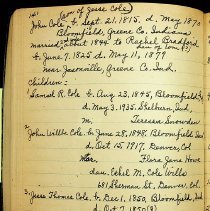 (son of Jesse Cole)
John Cole, b. Sept. 21, 1815, d. May 1870
Bloomfield, Greene Co. Indiana
married about 1844 to Rachel Bradford
b. June 7, 1825 d. May 11, 1879
near Jasonville, Greene Co. Ind.
Children:
Samuel R. Cole b. Aug 23, 1845, Bloomfield
d. May 3, 1935. Shelburn, Ind.
m. Teressa Snowden
John Wills Cole b. June 28, 1848, Bloomfield, Ind
d. Oct 15, 1917. Denver, Col
Mar. Flora Jane Howe
dau. Ethel M. Cole Wells
681 Sherman St., Denver, Col.
Jesse Thomas Cole b. Dec 1, 1850, Bloomfield, Ind